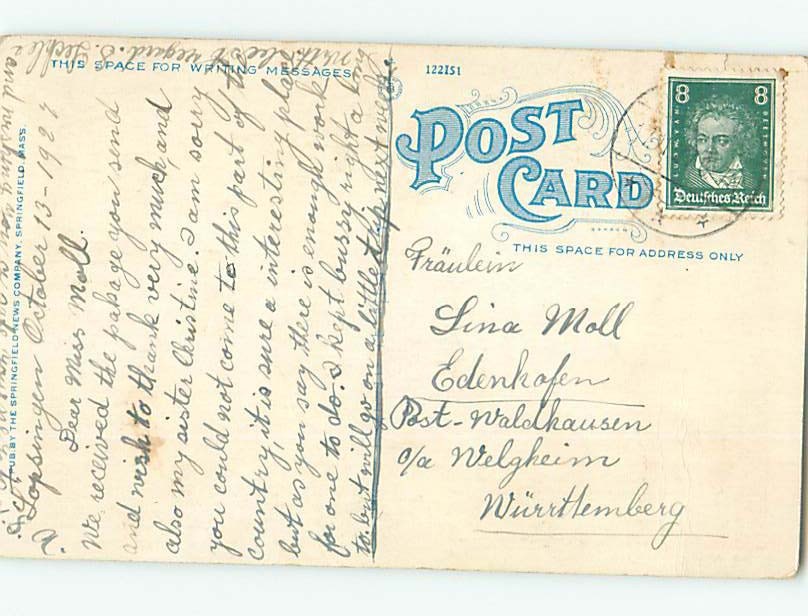 THIS SPACE FOR WRITING MESSAGES
122151
POST CARD
THIS SPACE FOR ADDRESS ONLY
8 8
BEETHOVEN
Deutsches Reich
PUB. BY THE SPRINGFIELD NEWS COMPANY, SPRINGFIELD, MASS.
Lopsingen October 13-1927
Dear Miss Moll.
We received the pakage you send
and wish to thank very much and
also my sister Christine. I am sorry
you could not come to this part of the
country, it is sure a interesting place
but as you say there is enough work
for one to do. I kept bussy right a long
but will go on a little trip next week
and wishing you
With best regard. S.
Fräulein
Lina Moll
Edenhofen
Post-Waldhausen
o/a Welzheim
Württemberg